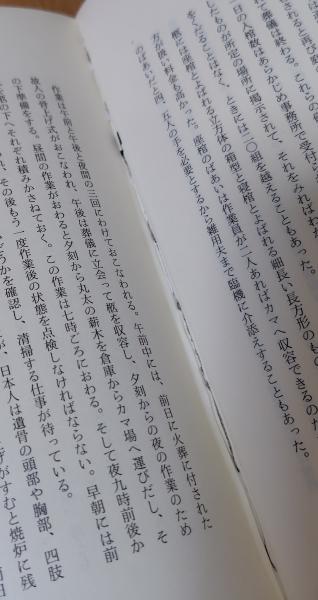 されると再び
葬儀は終わる。これらの
日の人棺数はあらかじめ事務所で受付
したものが所定の場所に掲示されて、それをみればわ
をくだることはなく、ときには二〇組を越えることもあった。
柩には座棺とよばれる立方体の箱型と寝棺とよばれる細長い長方形のもの
方が焼い料金も高かった。座棺のばあいは作業員が二人あればカマへ収容できるのだ
のばあいだと四、五人の手を必要とするから雑用夫まで臨機に介添えすることもあった。
作業は午前と午後と夜間の三回にわけておこなわれる。午前中には、前日に火葬に付された
故人の骨上げ式がおこなわれ、午後は葬儀に立会って柩を収容し、夕刻からの夜の作業のため
の下準備をする。昼間の作業がおわると夕刻から丸太の薪木を倉庫からカマ場へ運びだし、そ
の下へそれぞれ積みかさねておく。この作業は七時ころにおわる。そして夜九時前後か
れ、その後もう一度作業後の状態を点検しなければならない。早朝には前
どうかを確認し、清掃する仕事が待っている。
が、日本人は遺骨の頭部や胸部、四肢
がすむと焼炉に残